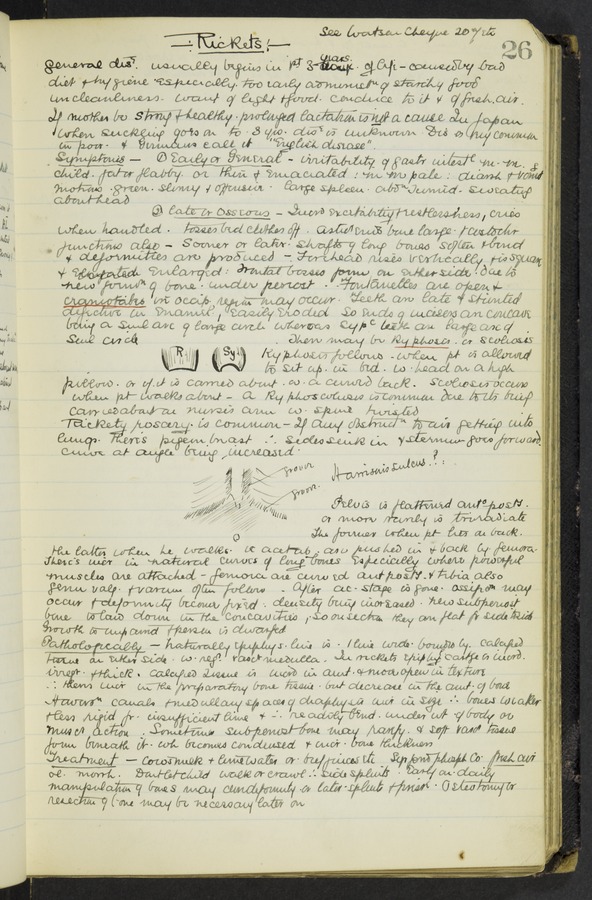 See Watson Cheyne
26
Rickets
General dis. usually begins in 1st 3 years of life - caused by bad
diet & hygiene especially too early administn of starchy food
uncleanliness. want of light & food. conduce to it & of fresh air.
If mother be strong & healthy. prolonged lactation is not a cause. In Japan
when suckling goes on to 3 yrs. dis is unknown Dis is very common
in poor. & Germans call it "English disease"
Symptoms - ① Early or General - irritability of gastr intestl m. m. &
child. fat or flabby. or thin & Emaciated : m m pale : diarrh & vomit
motions green. slimy & offensive. large spleen. abdn tumid. sweating
about head
② late or Osseous - restlessness, cries
when handled. tosses bed clothes off. ends bone large
junctions also - Sooner or later. shafts of long bones soften & bend
& deformities are produced - Forehead rises vertically, & is square
& Enlarged : frontal bosses form on either side due to
new formn of bone. under periost. Fontanelles are open &
craniotabes in occip. region may occur. Teeth are late & stunted
defective in Enamel, Easily eroded So ends of incisors are concave
being a small arc of large circle whereas syphc teeth are large arc of
small circle
R
Sy
There may be Kyphosis. or scoliosis
Kyphosis follows - when pt is allowed
to sit up. in bed. w. head on a high
pillow. or if it is carried about. w. a curved back. Scoliosis occurs
when pt walks about - a Kyphoscoliosis is common due to its being
carried about on nurse's arm w. spine twisted
Rickety rosary. is common - If any obstructn to air getting into
lungs. There's pigeon breast ∴ sides sink in & sternum goes forward
curve at angle being increased
groove
groove
Harrison's sulcus?
Pelvis is flattened anto postly.
or more rarely is triradiate
The former when pt lies on back.
the latter when he walks. ie acetab. are pushed in & back by femora.
There's incr in natural curves of long bones especially where powerful
muscles are attached - femora are curved ant postly. & tibia also
genu valg. & varum often follows. After ac. stage is gone. ossifn may
occur & deformity become fixed. density being increased. New subperiost
bone is laid down in the concavities, so on section they are flat fr side to side
Growth is impaired & person is dwarfed
Pathologically - naturally epiphys. line is thin line wide. bounded by calcified
tissue on either side w. regr vasct medulla. In rickets epiphy cartge is incrd.
irregr & thick. calcified tissue is incrd in amt. & more open in texture
∴ there's incr in the preparatory bone tissue. but decrease in the amt. of bone
Haversn canals & medullary spaces of diaphysis incr in size ∴ bones weaker
& less rigid fr. insufficient lime & ∴ readily bend. under wt of body or
muscr action. Sometimes subperiost bone may rarefy & soft vasct tissue
form beneath it. wh becomes condensed & incr. bone thickness
Treatment - cows milk & lime water or beef juices etc Syr ferri phosph Co. fresh air
ol. morrh. Dont let child walk or crawl ∴ side splints. Early on daily
manipulation of bones may deformity or later splints. Osteotomy or
resection of bone may be necessary later on